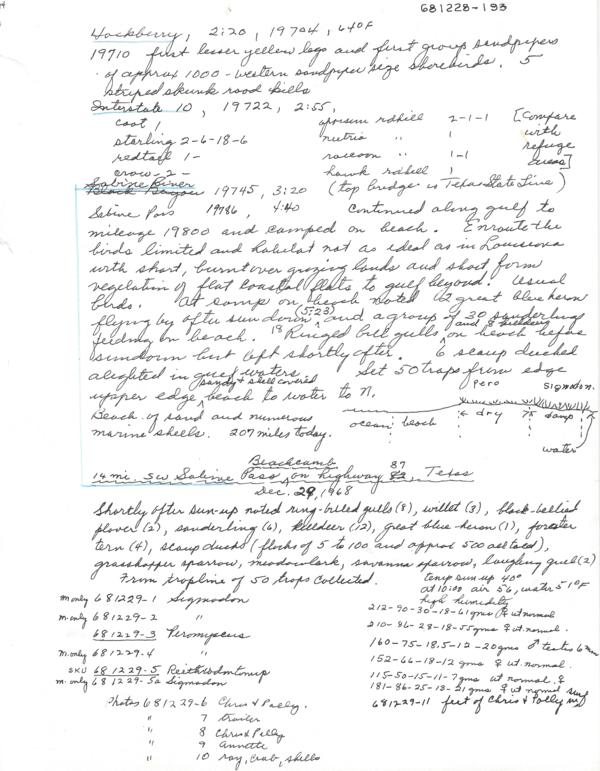 681228-193
Hackberry, 2:20, 19704, 64°F
19710 first lesser yellow legs and first group sandpipers
of approx 1000 - western sandpiper size shorebirds. 5
striped skunk road kills
Interstate 10, 19722, 2:55,
coot 1 opossum rdkill 2-1-1 [Compare
starling 2-6-18-6 nutria " 1 with
redtail 1- raccoon " 1-1 refuge
crow-2- hawk rdkill 1 areas]
Sabine River
Black Bayou 19745, 3:20 (top bridge is Texas State Line)
Sabine Pass 19786, 4:40 Continued along gulf to
mileage 19800 and camped on beach. Enroute the
birds limited and habitat not as ideal as in Louisiana
with short, burnt over grazing lands and short form
vegetation of flat coastal flats to gulf beyond. Usual
birds. At camp on beach noted 2 great blue heron
flying by after sun down (5:23) and a group of 30 sanderling
feeding on beach. 18 Ringed bill gulls and 8 killdeer on beach before
sundown but left shortly after. 6 scaup ducked
alighted in gulf waters. Set 50 traps from edge
upper edge sandy & shell covered beach to water to N.
Pero Sigmodon
Beach of sand and numerous
marine shells. 207 miles today.
ocean beach dry 75 damp
water
Beachcamb
14 mi. SW Sabine Pass on highway 82 87, Texas
Dec. 29, 1968
Shortly after sun-up noted ring-billed gulls (8), willet (3), black-bellied
plover (2), sanderling (6), killdeer (12), great blue heron (1), forster
tern (4), scaup ducks (flocks of 5 to 100 and approx 500 all told),
grasshopper sparrow, meadowlark, savanna sparrow, laughing gull (2)
From trapline of 50 traps collected. temp sun up 40°
at 10:00 air 56, water 51°F
high humidity
m. only 681229-1 Sigmodon 212-90-30-18-61gms ♀ ut normal
m. only 681229-2 " 210-86-28-18-55gms ♀ ut. normal.
681229-3 Peromyscus 160-75-18.5-12-20gms ♂ testes 6mm
m. only 681229-4 " 152-66-18-12 gms ♀ ut. normal.
SKU 681229-5 Reithrodontomys 115-50-15-11-7gms ut normal. ♀
m. only 681229-5a Sigmodon 181-86-25-18-21gms ♀ ut normal
Photos 681229-6 Chris & Polly. 681229-11 feet of Chris & Polly
" 7 trailer
" 8 Chris & Polly
" 9 Annette
" 10 ray, crab, shells